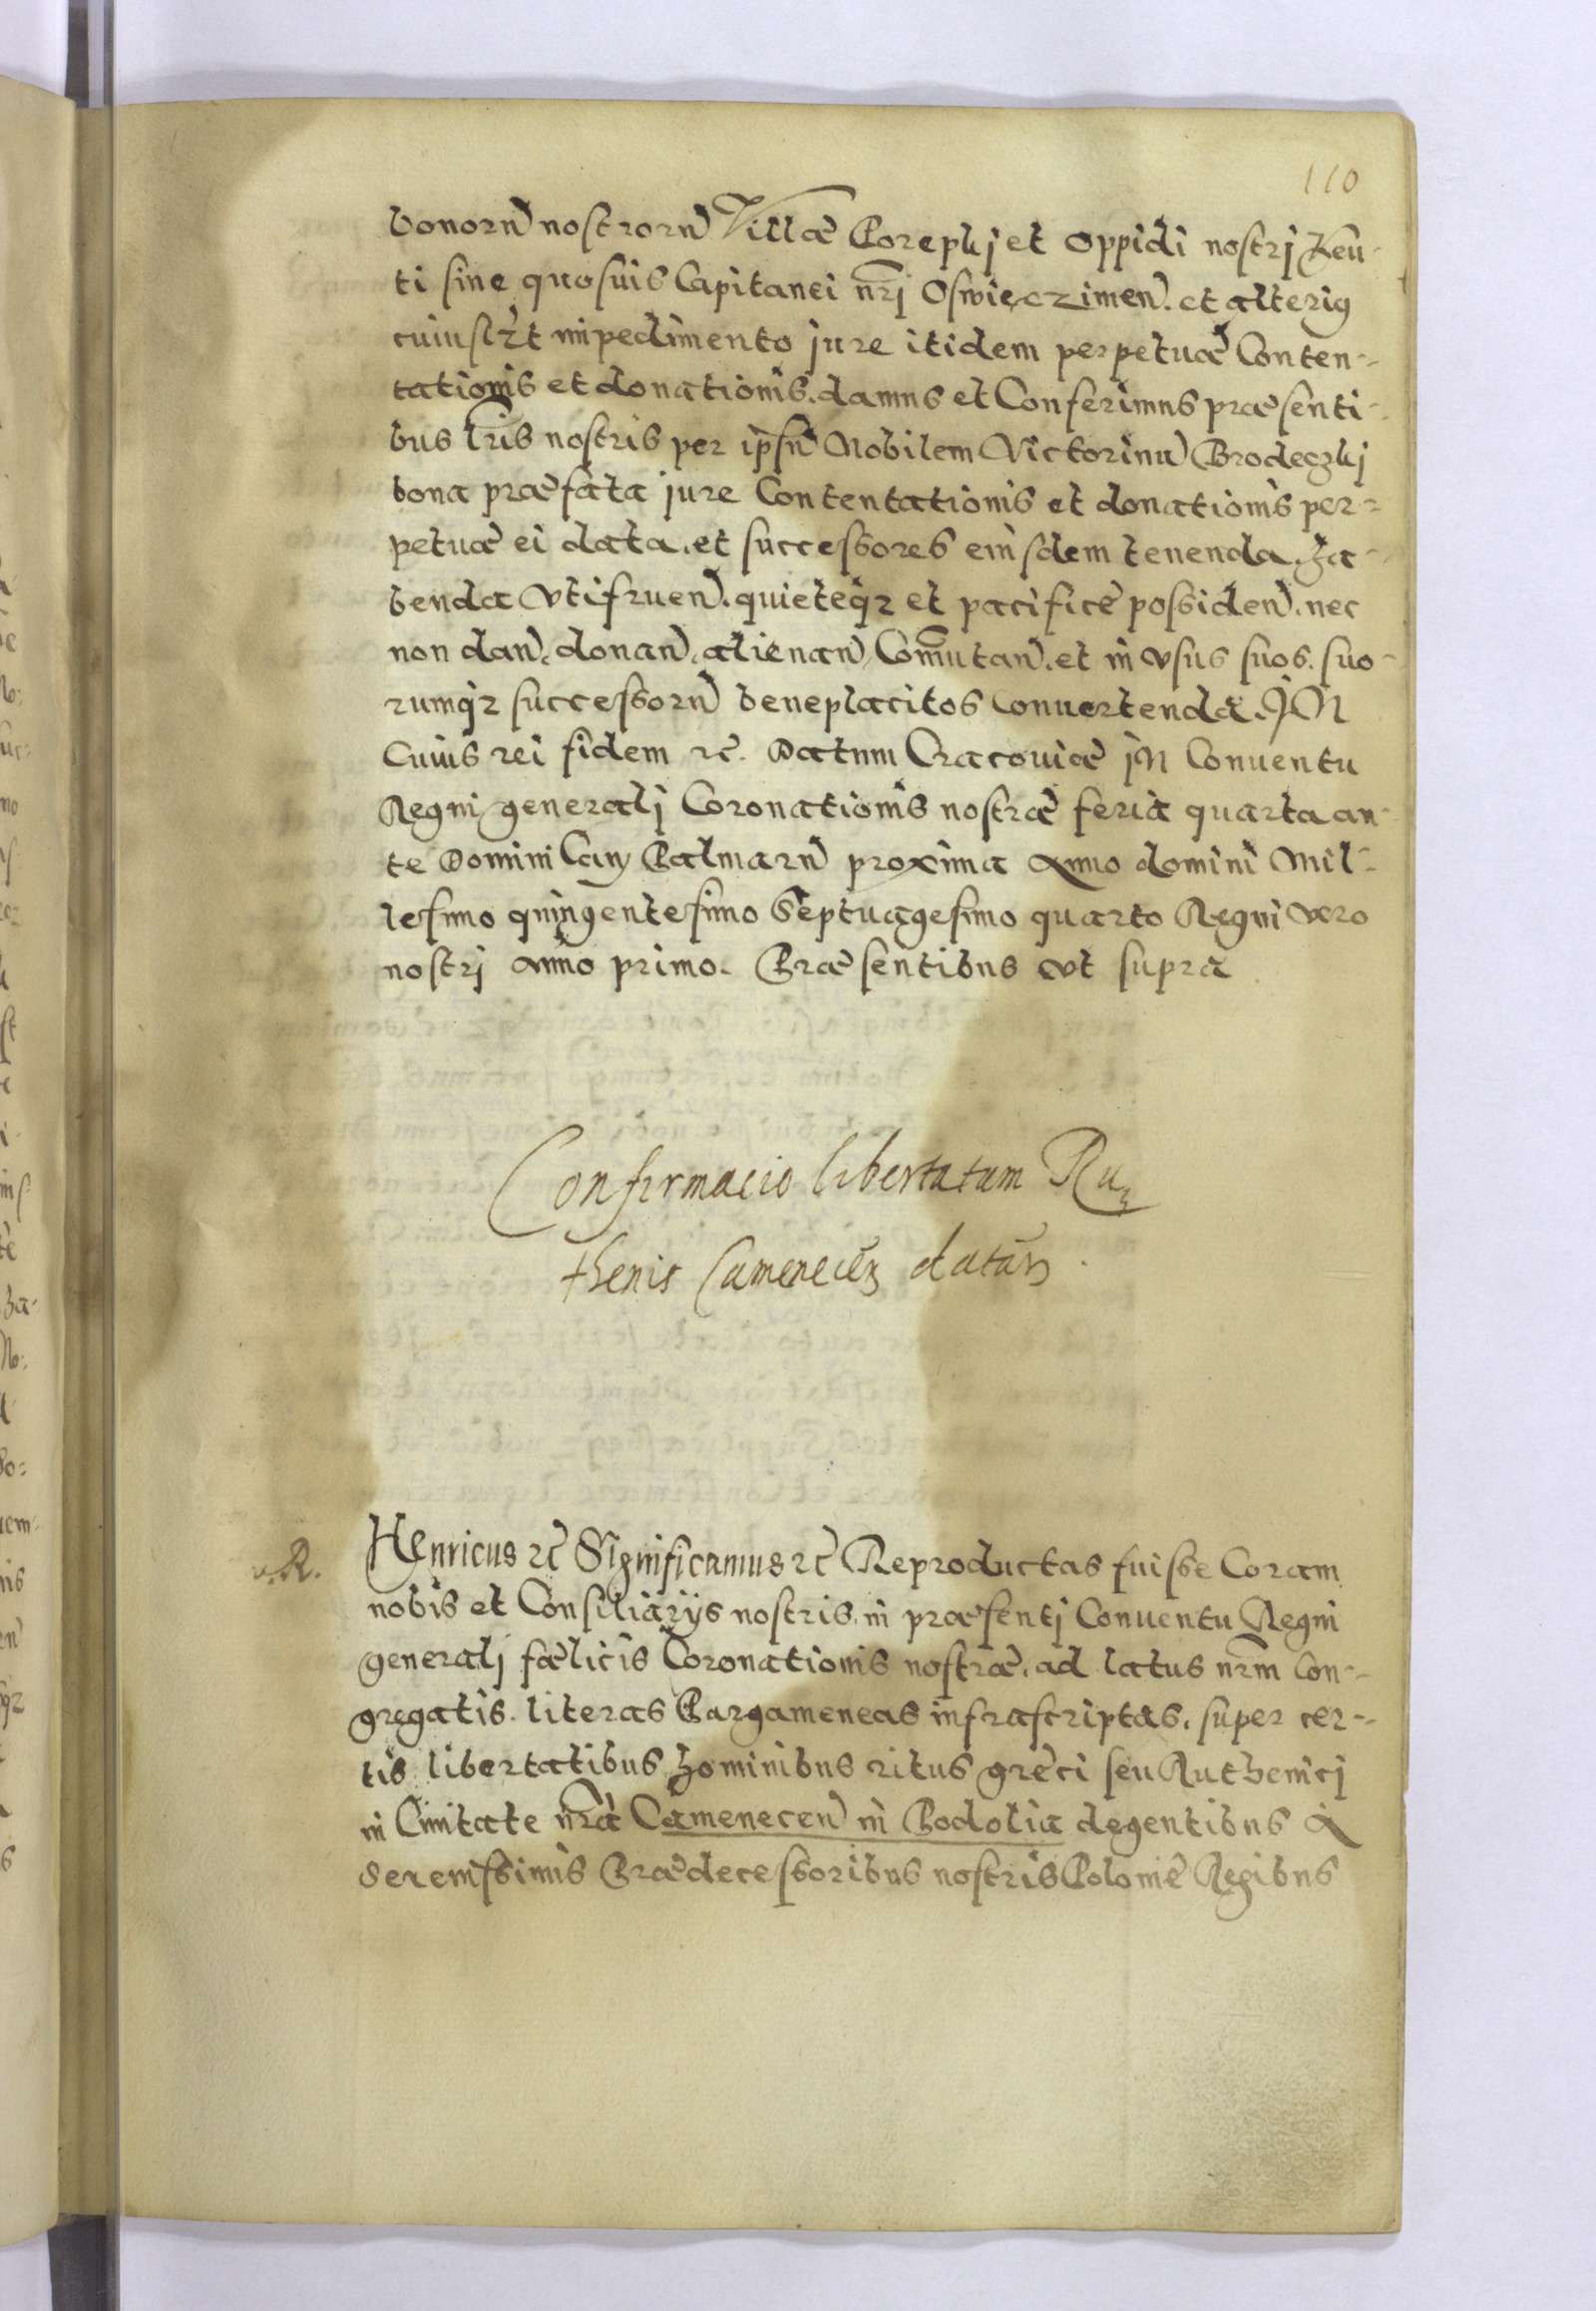 110
bonorũ nostrorũ Villæ Porepkj et Oppidi nostrj Keu-
ti sine quosuis Capitanei nr̃j Oswieczimen̄. et alterig
cuiuslꝛt impedimento jure itidem perpetuæ Conten-
tationis et donationis. damus et Conferimus præsenti-
bus Lr̃is nostris per ip̃sũ Nobilem Victorinũ Brodeczkj
bona præfata jure Contentationis et donationis per-
petuæ ei data. et successores eiusdem tenenda. ha-
benda vtifruen̄. quieteqꝛ et pacifice possiden̄. nec
non dan̄. donan̄. alienan̄. Com̃utan̄. et in vsus suos. suo-
rumqꝛ successorũ beneplacitos Conuertenda. IN
Cuius rei fidem ꝛc̃. Datum Cracouiæ iN Conuentu
Regni generalj Coronationis nostræ feria quarta an-
te Dominicam Palmarũ proxima Anno domini Mil-
lesimo quingentesimo Septuagesimo quarto Regni vero
nostrj anno primo. Præsentibus vt supra
Confirmacio libertatum Ru-
thenis Camenecen̄ datarū.
v. R.
Henricus ꝛc̃ Significamus ꝛc̃ Reproductas fuisse Coram
nobis et Consiliarijs nostris. in præsentj Conuentu Regni
generalj fælicis Coronationis nostræ. ad latus nr̃m Con-
gregatis. literas Pargameneas infrascriptas. super cer-
tis libertatibus hominibus ritus greci seu Ruthenicj
in Ciuitate nr̃a Camenecen̄ in Podolia degentibus A
Serenissimis Prædecessoribus nostris Poloniẽ Regibus